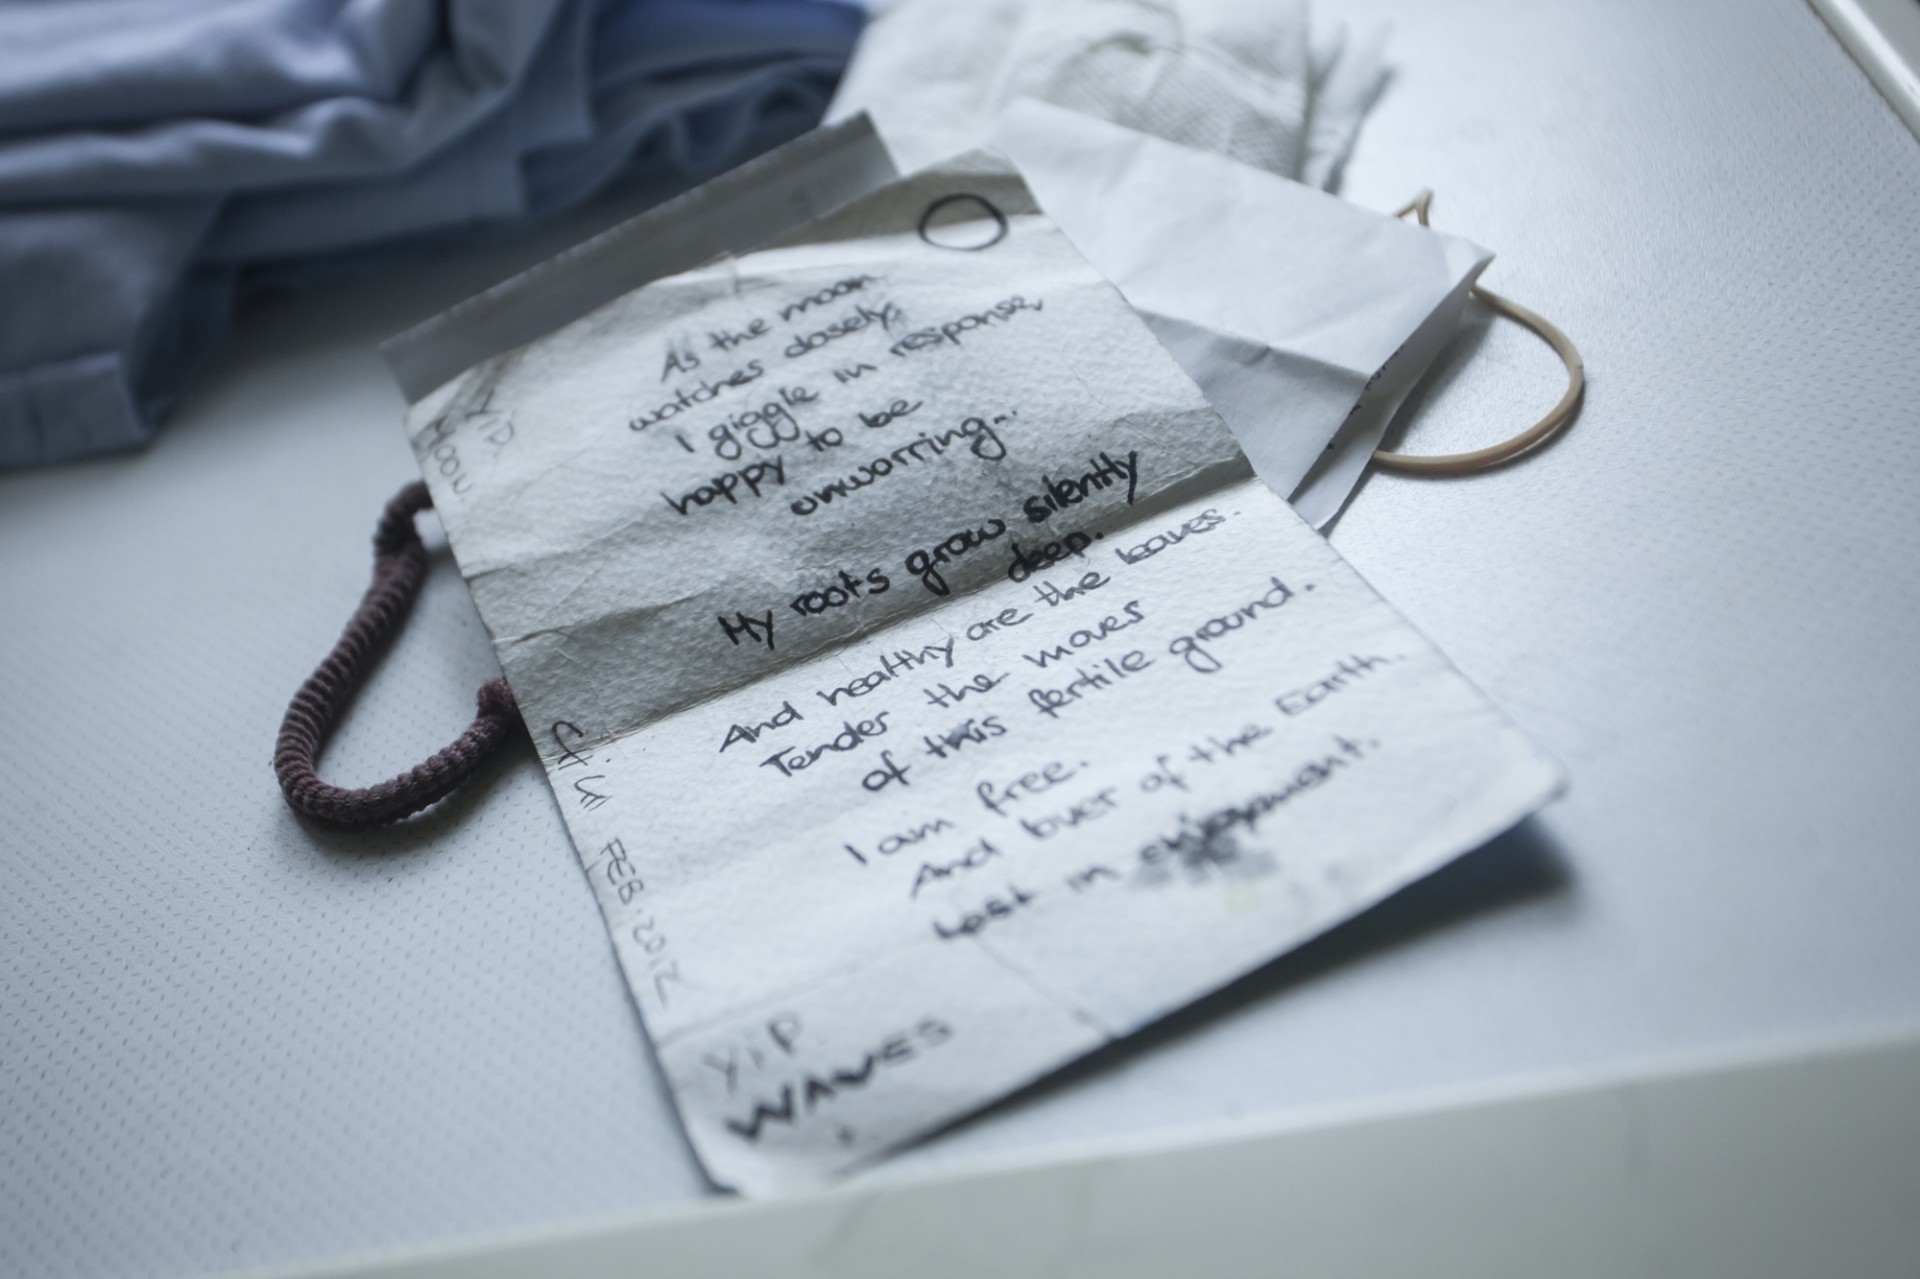 As the moon
watches closely,
I giggle in response,
happy to be
unworring...
My roots grow silently
deep.
And healthy are the leaves.
Tender the moves
of this fertile ground.
I am free.
And lover of the Earth.
Lost in enjoyment.
Yip
Moon
FEB. 2012
YiP
WAVES